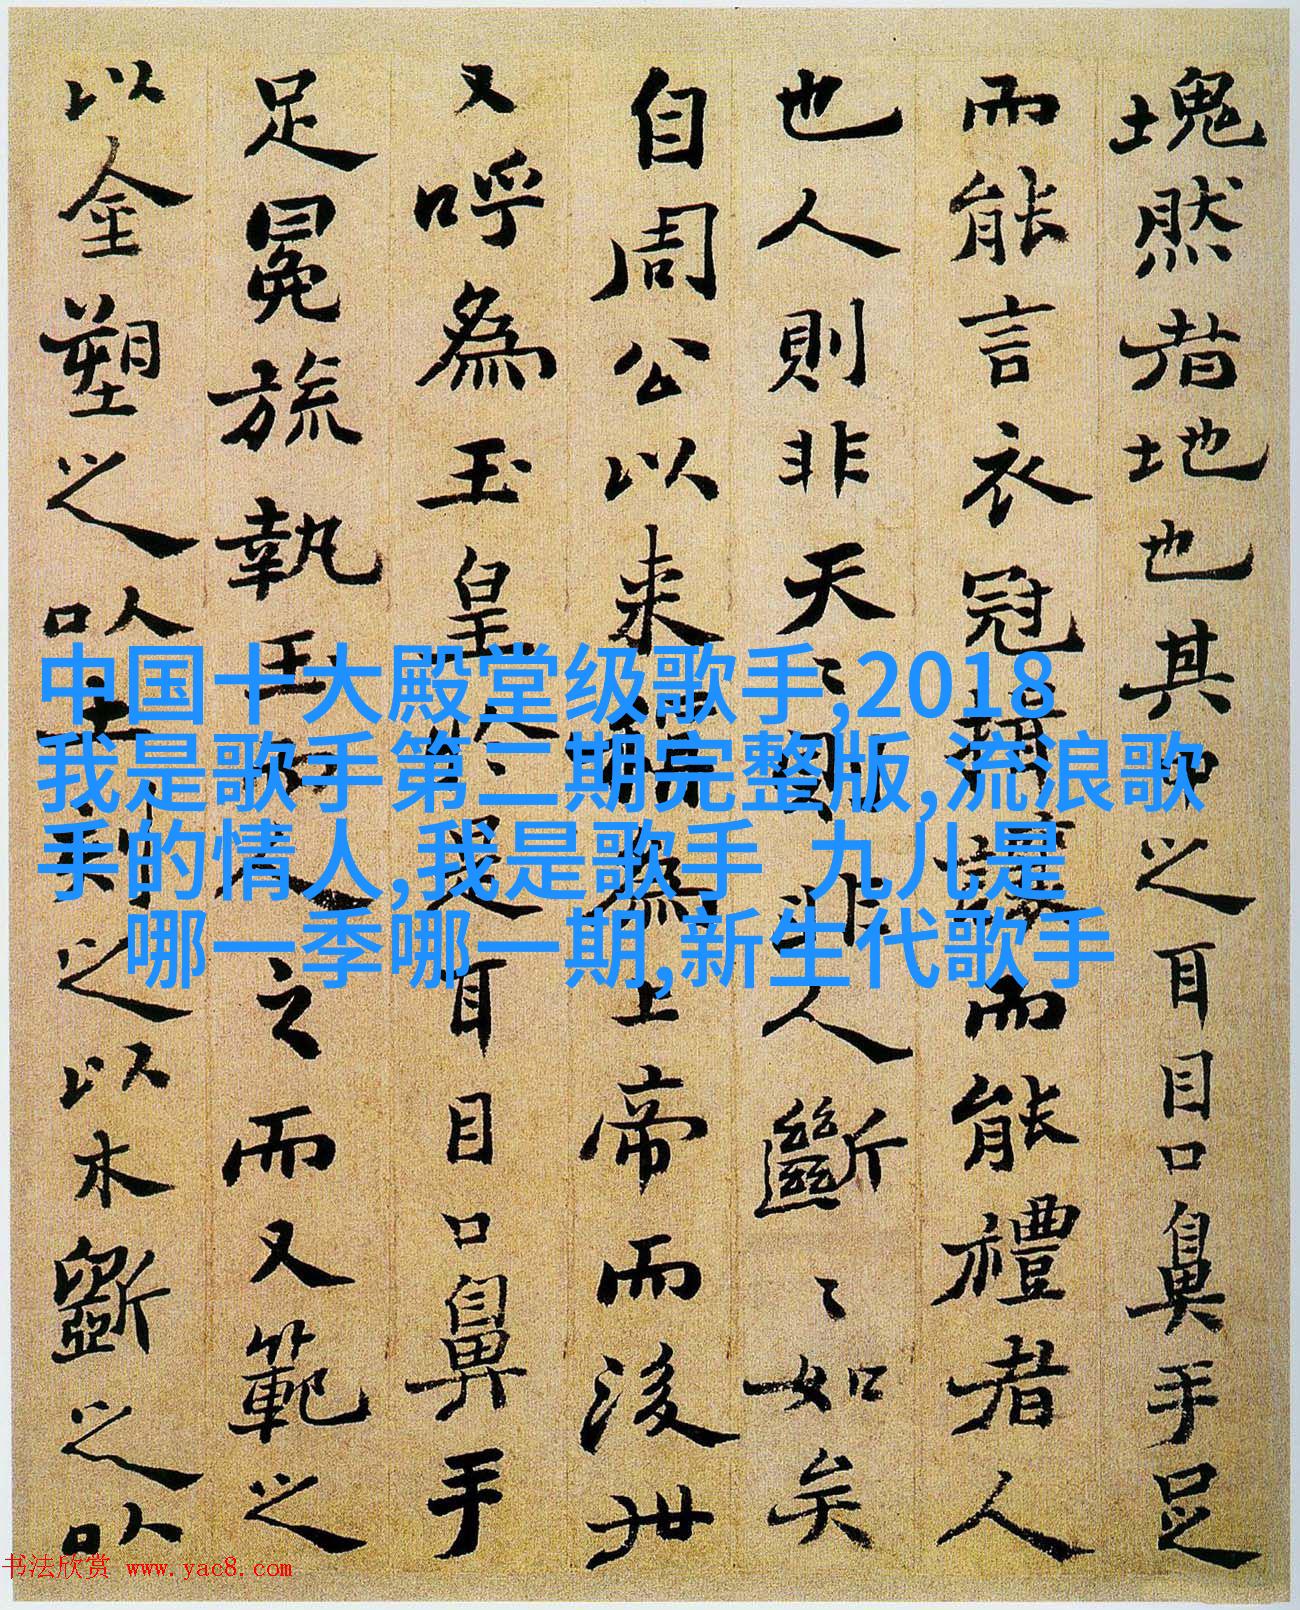 塊然者地也其之耳目口鼻手足
而能言衣冠揖讓而能禮者人
也人則非天〻則非人斷〻如矣
自周公以来稱為上帝而後世
又呼為玉皇是耳目口鼻手
足冕旒執玉人之而又範之
以金塑之以土刻之以木斲之以
中国十大殿堂级歌手,2018
我是歌手第二期完整版,流浪歌
手的情人,我是歌手 九儿是
哪一季哪一期,新生代歌手
书法欣赏 www.yac8.com